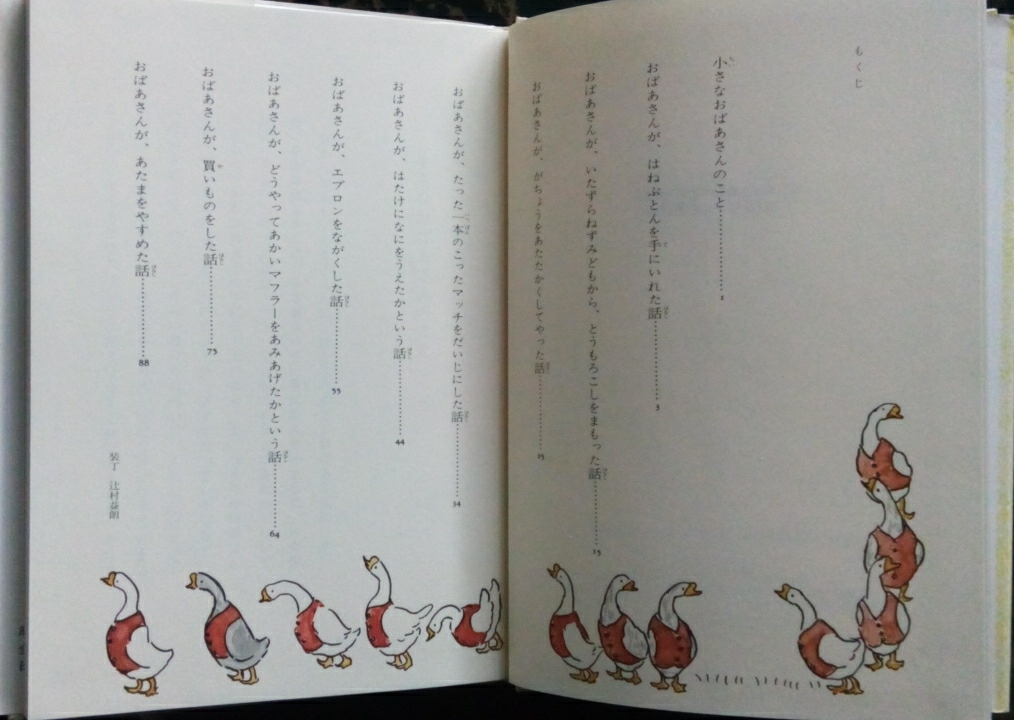 もくじ
小さなおばあさんのこと…………1
おばあさんが、はねぶとんを手にいれた話…………3
おばあさんが、いたずらねずみどもから、とうもろこしをまもった話…………15
おばあさんが、がちょうをあたたかくしてやった話…………25
おばあさんが、たった一本のこったマッチをだいじにした話…………34
おばあさんが、はたけになにをうえたかという話…………44
おばあさんが、エプロンをながくした話…………55
おばあさんが、どうやってあかいマフラーをあみあげたかという話…………64
おばあさんが、買いものをした話…………75
おばあさんが、あたまをやすめた話…………88
装丁 辻村益朗